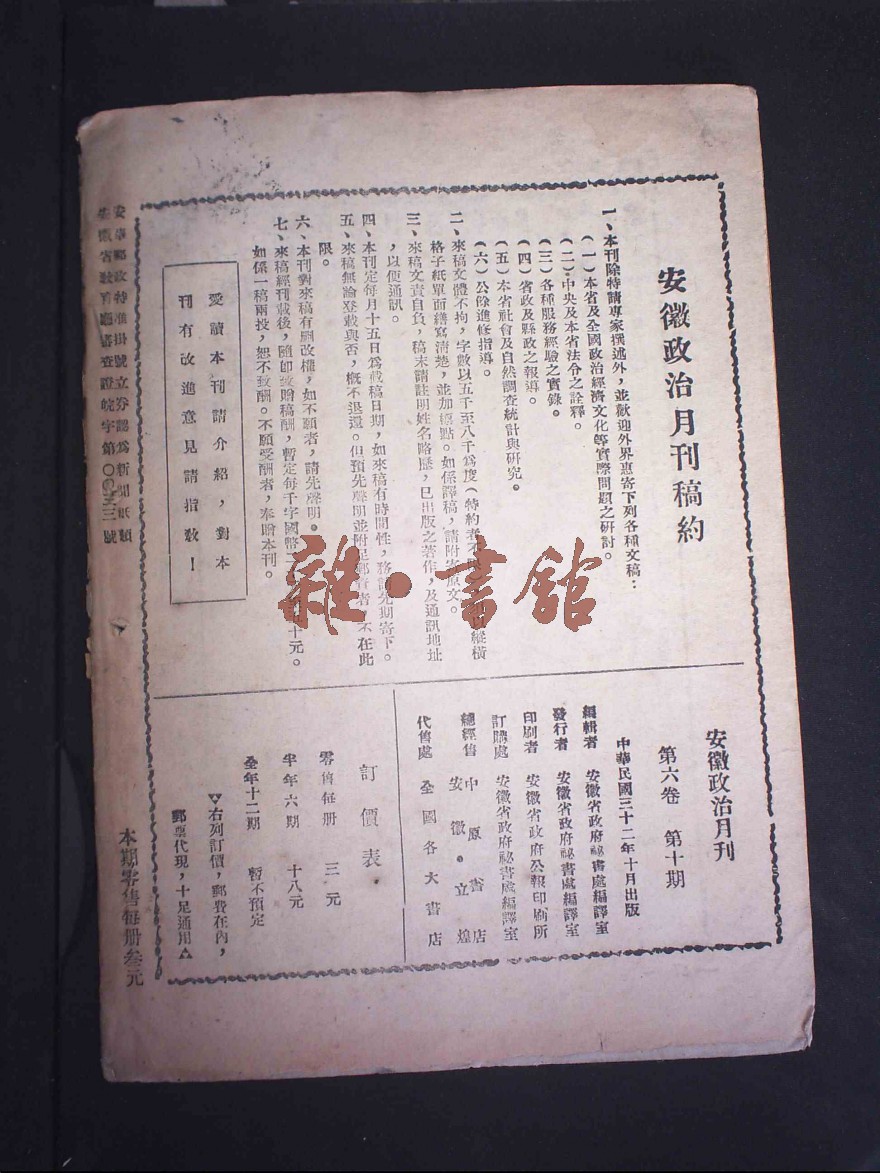 安徽政治月刊稿約
一、本刊除特請專家撰述外，並歡迎外界惠寄下列各種文稿：
（一）本省及全國政治經濟文化等實際問題之研討。
（二）中央及本省法令之詮釋。
（三）各種服務經驗之實錄。
（四）省政及縣政之報導。
（五）本省社會及自然調查統計與研究。
（六）公餘進修指導。
二、來稿文體不拘，字數以五千至八千爲度（特約者不
格子紙單面繕寫清楚，並加標點。如係譯稿，請附寄原文。
三、來稿文責自負，稿末請註明姓名略歷，已出版之著作，及通訊地址
，以便通訊。
四、本刊定每月十五日爲截稿日期，如來稿有時間性，務請先期寄下。
五、來稿無論登載與否，概不退還。但預先聲明並附足郵資者，不在此
限。
六、本刊對來稿有刪改權，如不願者，請先聲明。
七、來稿經刊載後，隨即致贈稿酬，暫定每千字國幣
十元。
如係一稿兩投，恕不致酬。不願受酬者，奉贈本刊。
愛讀本刊請介紹，對本
刊有改進意見請指教！
安徽政治月刊
第六卷 第十期
中華民國三十二年十月出版
編輯者 安徽省政府祕書處編譯室
發行者 安徽省政府祕書處編譯室
印刷者 安徽省政府公報印刷所
訂購處 安徽省政府祕書處編譯室
總經售 中原書店
安徽•立煌
代售處 全國各大書店
訂價表
零售每册 三元
半年六期 十八元
全年十二期 暫不預定
▽右列訂價，郵費在內，
郵票代現，十足通用△
本期零售每册叁元
安寧郵政特准掛號立券認爲新聞紙類
審查證皖字第
號
雜•書館